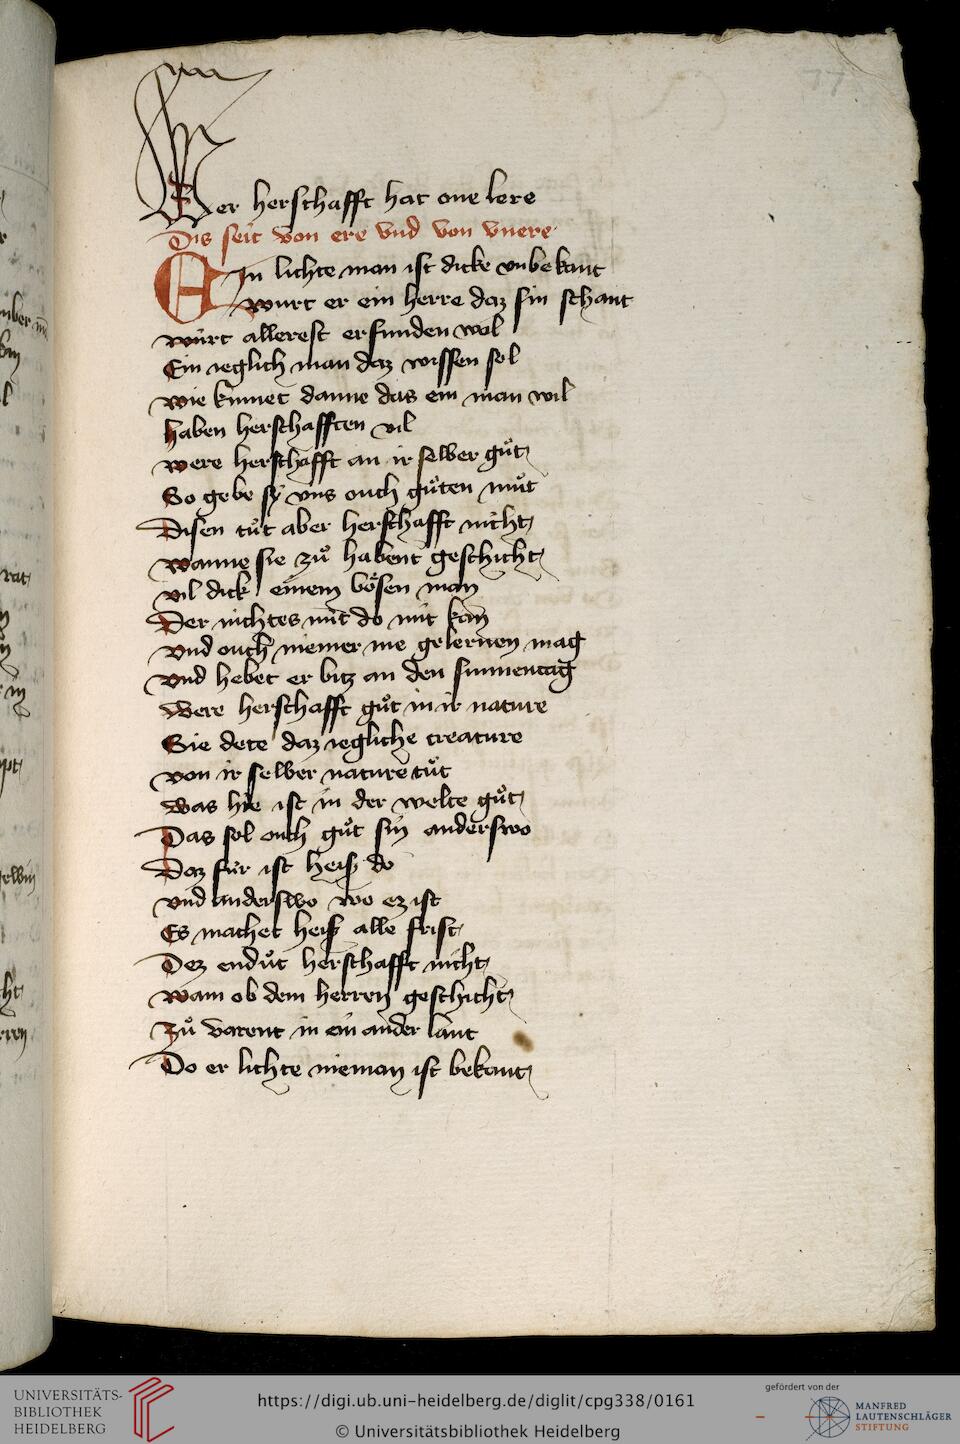 77
Wer herschafft hat one lere
Dis seit von ere vnd von vnere
EIn lichte man ist dicke vnbekant
wurt er ein herre daz sin schant
würt allerest erfunden wol
Ein ieglich man daz wissen sol
wie kumet danne das ein man wil
haben herschafften vil
were herschafft an ir selber gůt
So gebe sÿ vns ouch gůten můt
Disen tůt aber herschafft nicht
wanne sie zů habent geschicht
vil dick einem bösen man
Der nichtes nüt do mit kan
vnd ouch niemer me gelernen mag
vnd hebet er bitz an den sunnentag
Were herschafft gůt in ir nature
Sie dete daz iegliche creature
von ir selber nature tůt
was hie ist in der welte gůt
Das sol ouch gůt sin anderswo
Daz für ist heiß do
vnd anderswo wo ez ist
Es machet heiß alle frist
Dez endůt herschafft nicht
wann ob dem herren geschicht
Zů varent in ein ander lant
Do er lichte nieman ist bekant
UNIVERSITÄTS-
BIBLIOTHEK
HEIDELBERG
https://digi.ub.uni-heidelberg.de/diglit/cpg338/0161
© Universitätsbibliothek Heidelberg
gefördert von der
MANFRED
LAUTENSCHLÄGER
STIFTUNG